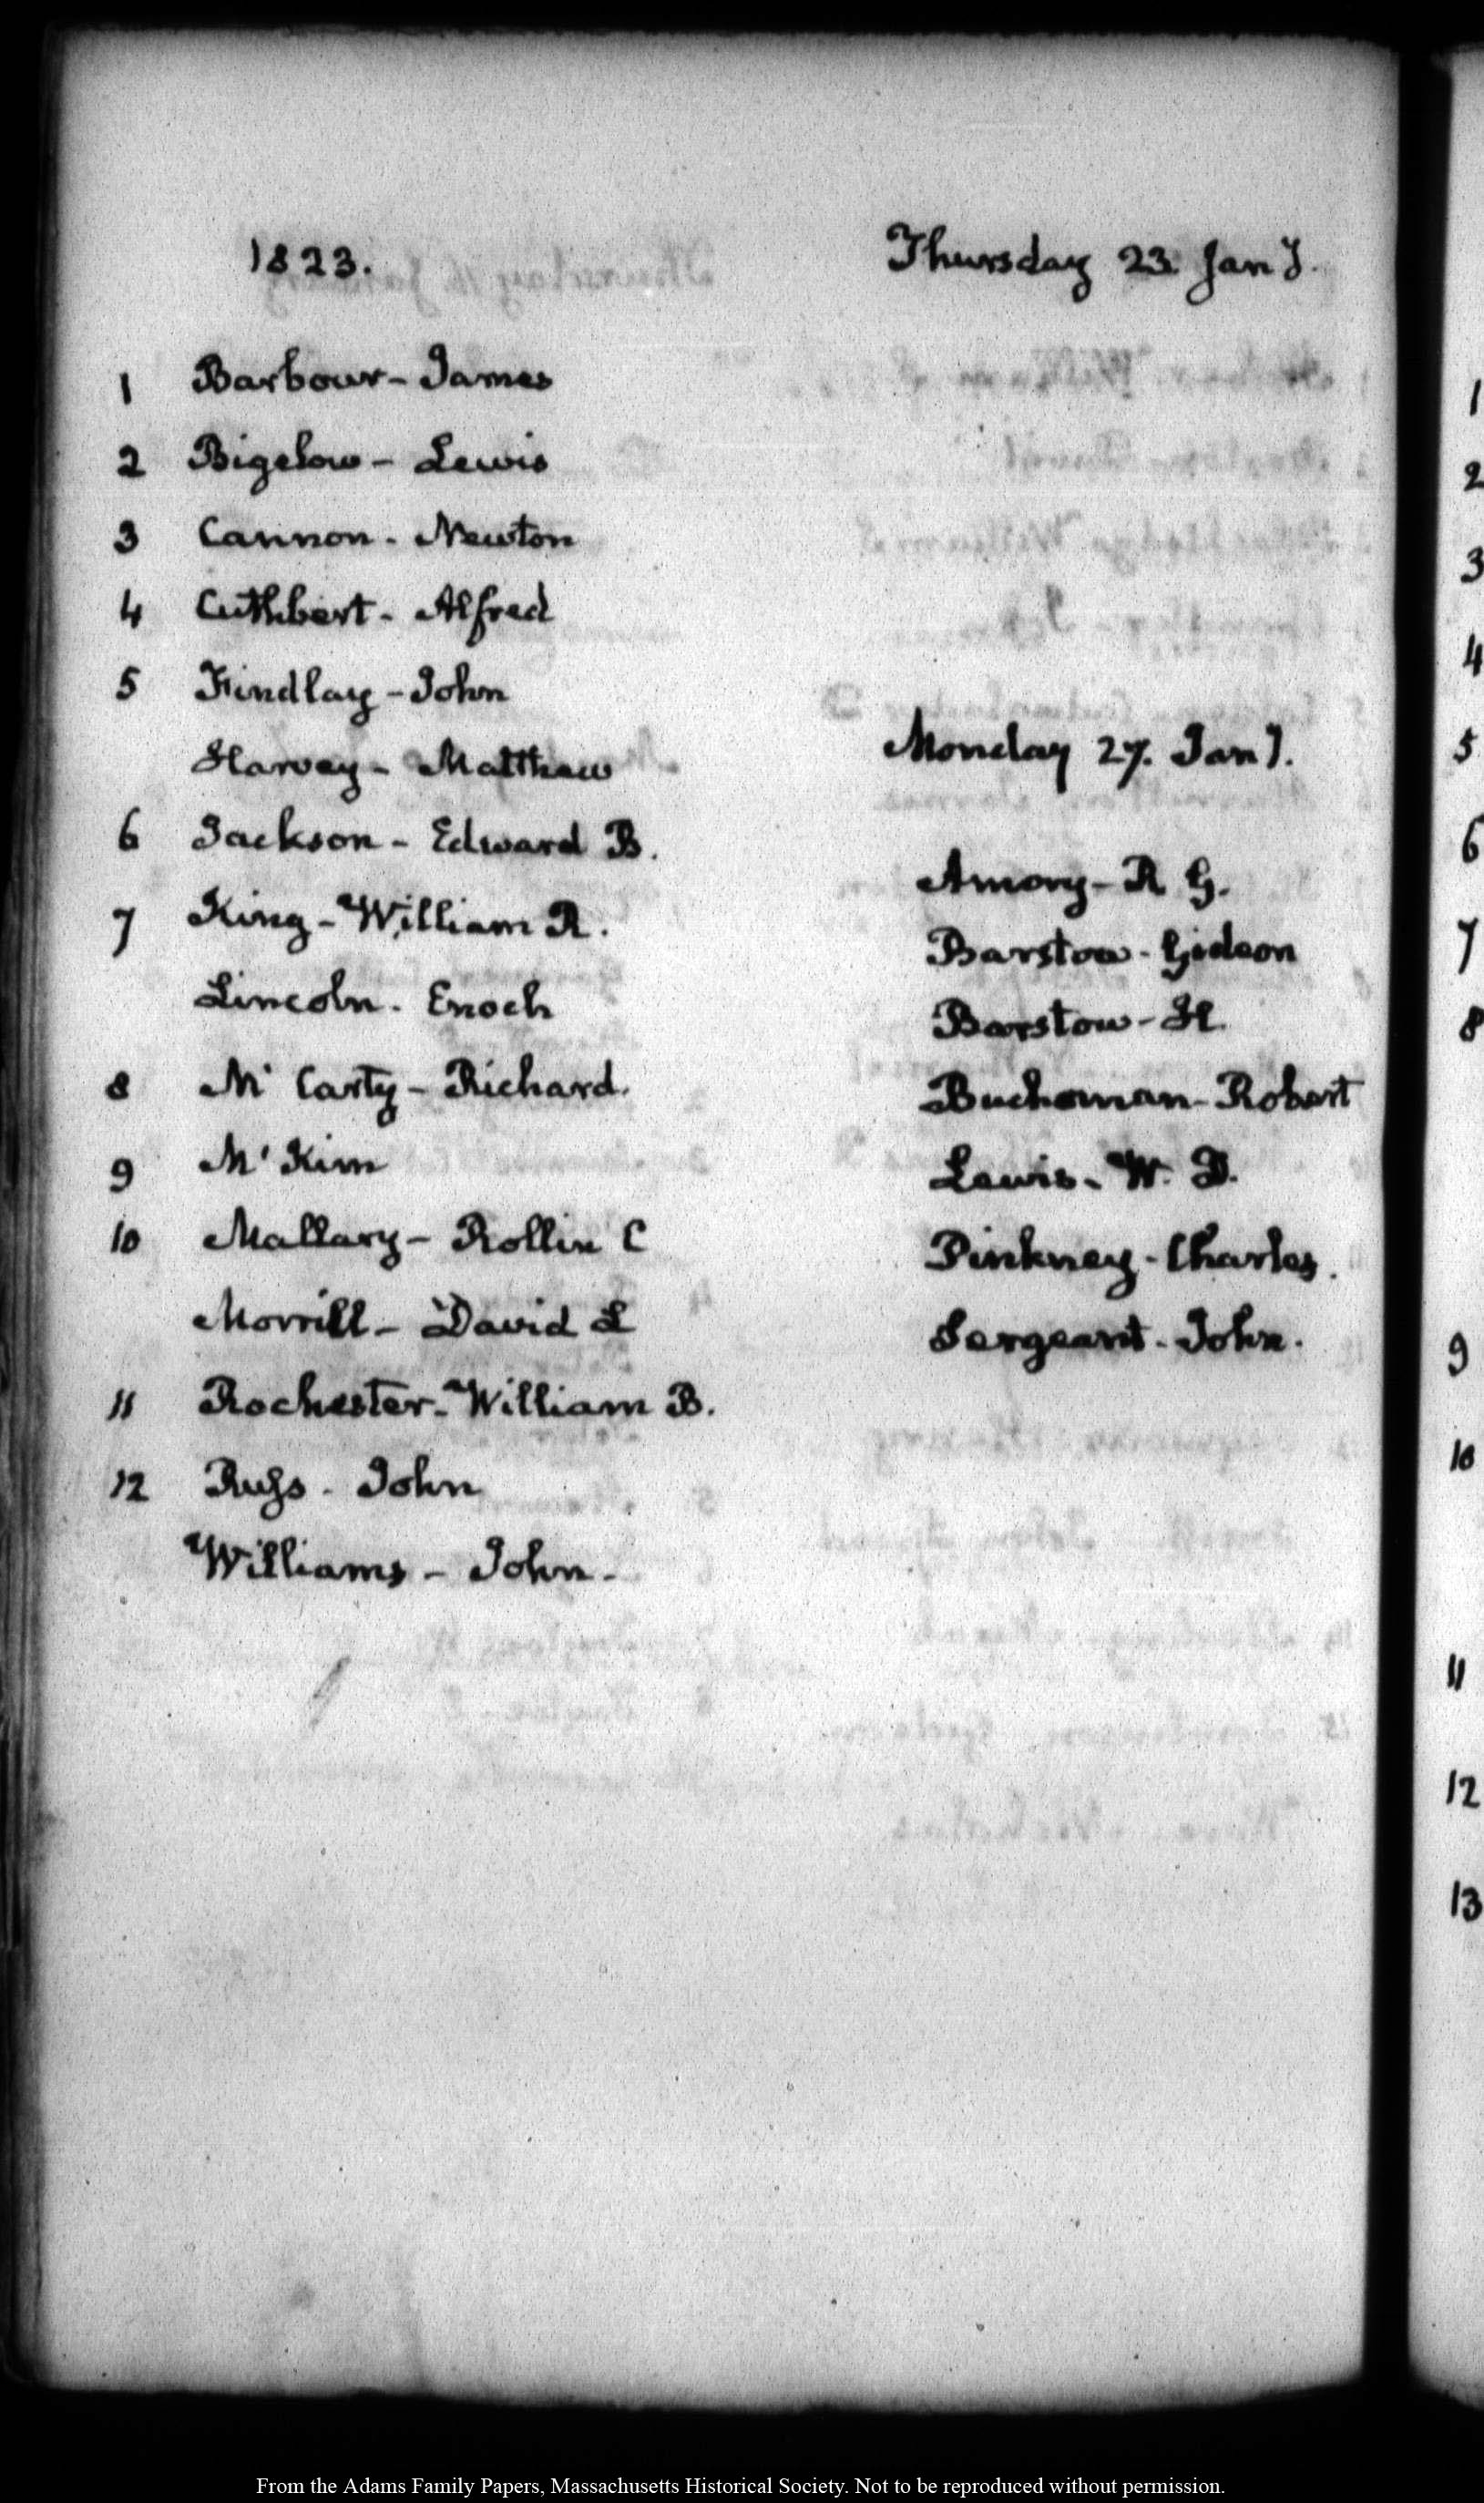 1823.
Thursday 23. Jany.
1 Barbour - James
2 Bigelow - Lewis
3 Cannon - Newton
4 Cuthbert - Alfred
5 Findlay - John
Harvey - Matthew
6 Jackson - Edward B.
7 King - William R.
Lincoln - Enoch
8 Mc Carty - Richard.
9 Mc Kim
10 Mallary - Rollin C
Morrill - David L
11 Rochester - William B.
12 Russ - John
Williams - John -
Monday 27. Jany.
Amory - R G.
Barstow - Gideon
Barstow - H.
Buchanan - Robert
Lewis - W. D.
Pinkney - Charles.
Sergeant - John.
1
2
3
4
5
6
7
8
9
10
11
12
13
From the Adams Family Papers, Massachusetts Historical Society. Not to be reproduced without permission.